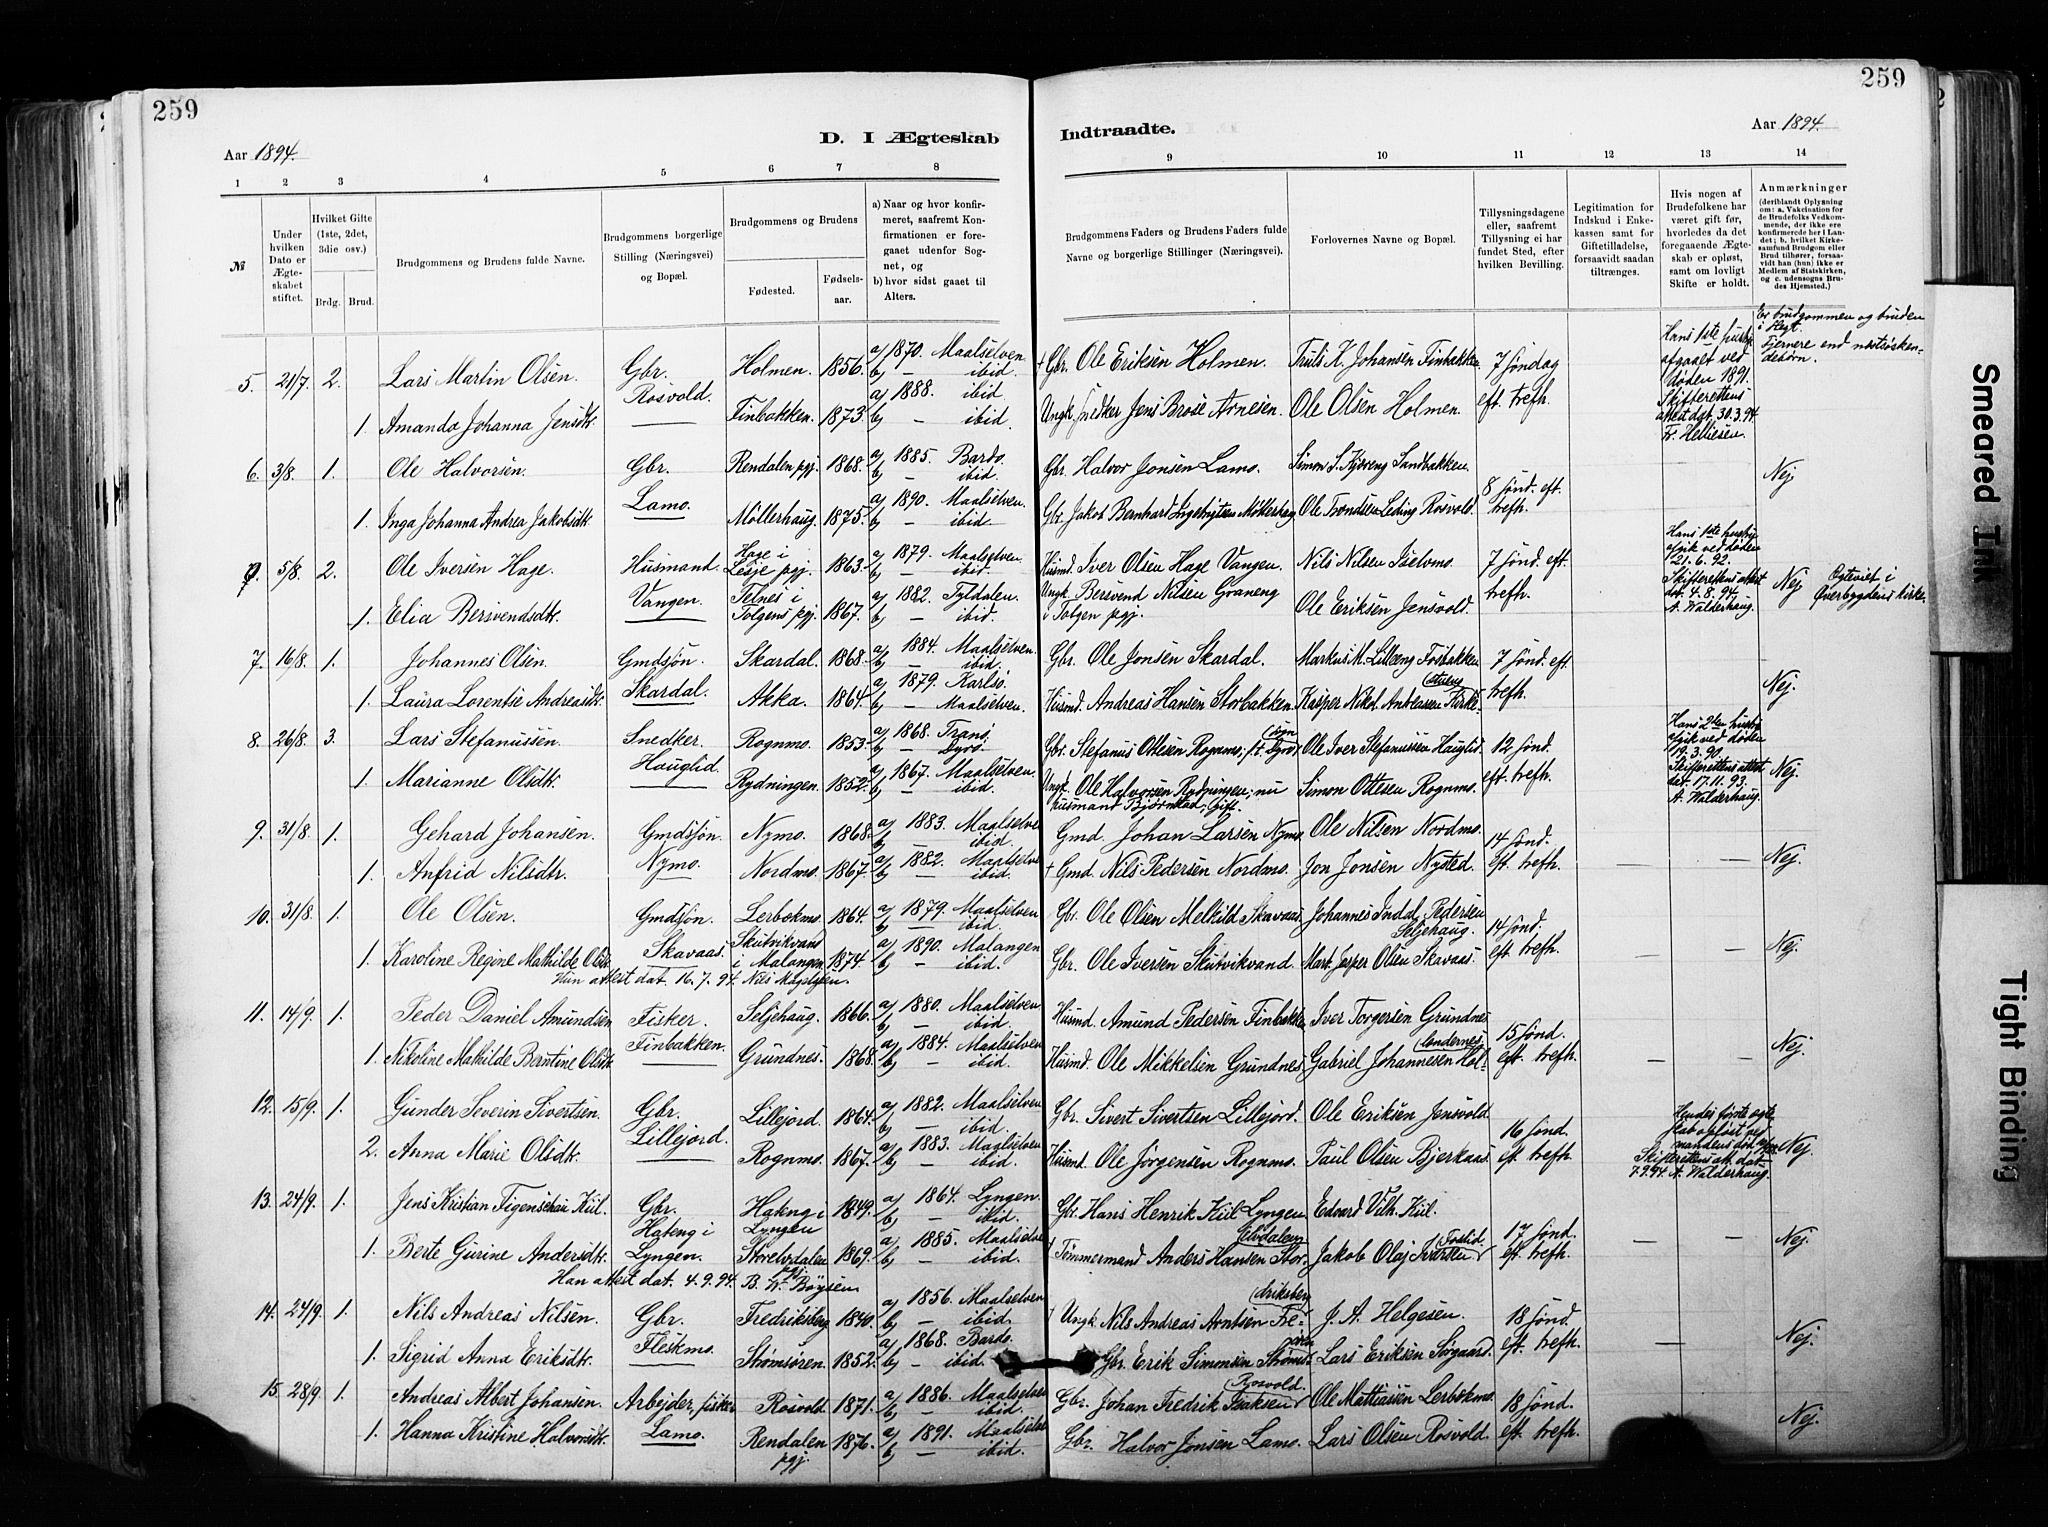 259
259
D. I Ægteskab Indtraadte.
Aar 1894.
Aar 1894.
1 2 3 4 5 6 7 8 9 10 11 12 13 14
№
Under hvilken Dato er Ægteskabet stiftet.
Hvilket Gifte (1ste, 2det, 3die osv.)
Brdg. Brud.
Brudgommens og Brudens fulde Navne.
Brudgommens borgerlige Stilling (Næringsvei) og Bopæl.
Brudgommens og Brudens
Fødested.
Fødselsaar.
a) Naar og hvor konfirmeret, saafremt Konfirmationen er foregaaet udenfor Sognet, og
b) hvor sidst gaaet til Alters.
Brudgommens Faders og Brudens Faders fulde Navne og borgerlige Stillinger (Næringsvei).
Forlovernes Navne og Bopæl.
Tillysningsdagene eller, saafremt Tillysning ei har fundet Sted, efter hvilken Bevilling.
Legitimation for Indskud i Enkekassen samt for Giftetilladelse, forsaavidt saadan tiltrænges.
Hvis nogen af Brudefolkene har været gift før, hvorledes da det foregaaende Ægteskab er opløst, samt om lovligt Skifte er holdt.
Anmærkninger (deriblandt Oplysning om: a. Vakcination for de Brudefolks Vedkommende, der ikke ere konfirmerede her i Landet; b. hvilket Kirkesamfund Brudgom eller Brud tilhører, forsaavidt han (hun) ikke er Medlem af Statskirken, og c. udensogns Brudes Hjemsted.)
5. 21/7. 2. Lars Martin Olsen. Gbr. Rosvold. Holmen. 1856. a) 1870. Maalselven b) — ibid. + Gbr. Ole Eriksen Holmen. Truls K. Johansen Finbakken 7 søndag eft. trefh.
Hans 1ste hustru afgaaet ved døden 1891. Skifterettens attest dat. 30.3.94. Fr. Helliesen.
Er brudgommen og bruden i slegt. Fjernere end næstsøskendebørn.
1. Amanda Johanna Jensdtr. Finbakken. 1873. a) 1888. ibid b) — ibid. Ungk. Snedker Jens Brose Arnesen. Ole Olsen Holmen.
6. 3/8. 1. Ole Halvorsen. Gbr. Lamo. Rendalen pgj. 1868. a) 1885. Bardo. b) — ibid. Gbr. Halvor Jonsen Lamo. Simon S. Kjæreng Sandbakken. 8 sønd. eft. trefh. — Nej
1. Inga Johanna Andrea Jakobsdtr. Møllerhaug. 1875. a) 1890. Maalselven. b) — ibid Gbr. Jakob Bernhard Ingebrigtsen Møllerhag. Ole Trondsen Leding Rosvold.
5/8. 2. Ole Iversen Hage. Husmand. Vangen. Hage i Lesje pgj. 1863. a) 1879. Maalselven b) — ibid. Husmd. Iver Olsen Hage Vangen. Nils Nilsen Iselvmo. 7 sønd. eft. trefh.
Hans 1ste hustru afgik ved døden 21.6.92. Skifterettens attest dat. 4.8.94. A. Walderhaug. Nej Ægteviet i Øverbygdens kirke.
1. Elia Bersvendsdtr. Telnes i Tolgens pgj. 1867. a) 1882. Tyldalen. b) — ibid. Ungk. Bersvend Nilsen Graneng i Tolgen pgj. Ole Eriksen Jensvold.
7. 16/8. 1. Johannes Olsen. Gmdsjøn. Skardal. Skardal. 1868. a) 1884. Maalselven. b) — ibid. Gbr. Ole Jonsen Skardal. Markus M. Lilleeng Fosbakken 7 sønd. eft. trefh. — Nej.
1. Laura Lorentse Andreasdtr. Akka. 1864. a) 1879. Karlsø. b) — Maalselven. Husmd. Andreas Hansen Storbakken. Kasper Nikol. Andreassen Kirkestueng
8. 26/8. 3. Lars Stefanussen. Snedker. Houglid. Rognmo. 1853. a) 1868. Trano. b) — Dyrø. Gbr. Stefanus Ottesen Rognmo, f. t. Dyrø sogn Ole Iver Stefanussen Hauglid. 12 sønd. eft. trefh.
Hans 2den hustru afgik ved døden 19.3.90. Skifterettens attest dat. 17.11.93. A. Walderhaug. Nej
1. Marianne Olsdtr. Rydningen. 1852. a) 1867. Maalselven. b) — ibid. Ungk. Ole Halvorsen Rydningen; nu husmand Bjørnstad, gift. Simon Ottesen Rognmo.
9. 31/8. 1. Gehard Johansen. Gmdsjøn. Nymo. Nymo. 1868. a) 1883. Maalselven b) — ibid. Gmd. Johan Larsen Nymo Ole Nilsen Nordmo. 14 sønd. eft. trefh. — — Nej.
1. Anfrid Nilsdtr. Nordmo. 1867. a) 1882. Maalselven b) — ibid. + Gmd. Nils Pedersen Nordmo. Jon Jonsen Nysted.
10. 31/8. 1. Ole Olsen. Gmdsjøn. Skavaas. Lerbekmo. 1864. a) 1879. Maalselven b) — ibid. Gbr. Ole Olsen Melkild Skavaas. Johannes Indal Pedersen Seljehaug. 14 sønd. eft. trefh. — — Nej.
1. Karoline Regine Mathilde Olsdtr. Skutvikvand i Malangen. 1874. a) 1890. Malangen b) — ibid. Gbr. Ole Iversen Skutvikvand. Mart. Jesper Olsen Skavaas.
Hun attest dat. 16.7.94. Nils
11. 14/9. 1. Peder Daniel Amundsen Fisker. Finbakken. Seljehaug. 1866. a) 1880. Maalselven b) — ibid. Husmd. Amund Pedersen Finbakken Iver Torgersen Grundnes. 15 sønd. eft. trefh. — — Nej.
1. Nikoline Mathilde Berntine Olsdtr. Grundnes. 1868. a) 1884. Maalselven b) — ibid. Husmd. Ole Mikkelsen Grundnes. Gabriel Johannesen Holændernes.
12. 15/9. 1. Gunder Severin Sivertsen. Gbr. Lillejord. Lillejord. 1864. a) 1882. Maalselven b) — ibid. Gbr. Sivert Sivertsen Lillejord. Ole Eriksen Jensvold. 16 sønd. eft. trefh.
Hendes første ægteskab opløst ved mandens død. Skifterettens att. dat. 7.9.94. A. Walderhaug. Nej.
2. Anna Marie Olsdtr. Rognmo. 1867. a) 1883. Maalselven b) — ibid. Husmd. Ole Jørgensen Rognmo. Paul Olsen Bjerkaas.
13. 24/9. 1. Jens Kristian Figenschau Kiil. Gbr. Hateng i Lyngen. Hateng i Lyngen 1849. a) 1864. Lyngen. b) — ibid. Gbr. Hans Henrik Kiil Lyngen Edvard Vilh. Kiil. 17 sønd. eft. trefh. — — Nej.
1. Berte Gurine Andersdtr. Storelvdalen pgj. 1869. a) 1885. Maalselven b) — ibid. Tømmermand Anders Hansen Storelvdalen Jakob Olaj Iversen Fosslid.
Han attest dat. 4.9.94. B. W. Bøysen
14. 24/9. 1. Nils Andreas Nilsen. Gbr. Fleskmo. Fredriksberg 1840. a) 1856. Maalselven b) — ibid. + Ungk. Nils Andreas Arntsen Fredriksberg J. A. Helgesen. 18 sønd. eft. trefh. — — Nej.
1. Sigrid Anna Eriksdtr. Strømsøren. 1852. a) 1868. Bardo. b) — ibid. Gbr. Erik Simonsen Strømsøren Lars Eriksen Sørgaard.
15. 28/9. 1. Andreas Albert Johansen. Arbejder, fisker Lamo. Rosvold. 1871. a) 1886. Maalselven b) — ibid. Gbr. Johan Fredrik Isaksen Rosvold. Ole Mathiasen Lerbekmo. 18 sønd. eft. trefh. Nej.
1. Hanna Kristine Halvorsdtr. Rendalen pgj. 1876. a) 1891. Maalselven b) — ibid. Gbr. Halvor Jonsen Lamo. Lars Olsen Rosvold.
Smeared Ink
Tight Binding